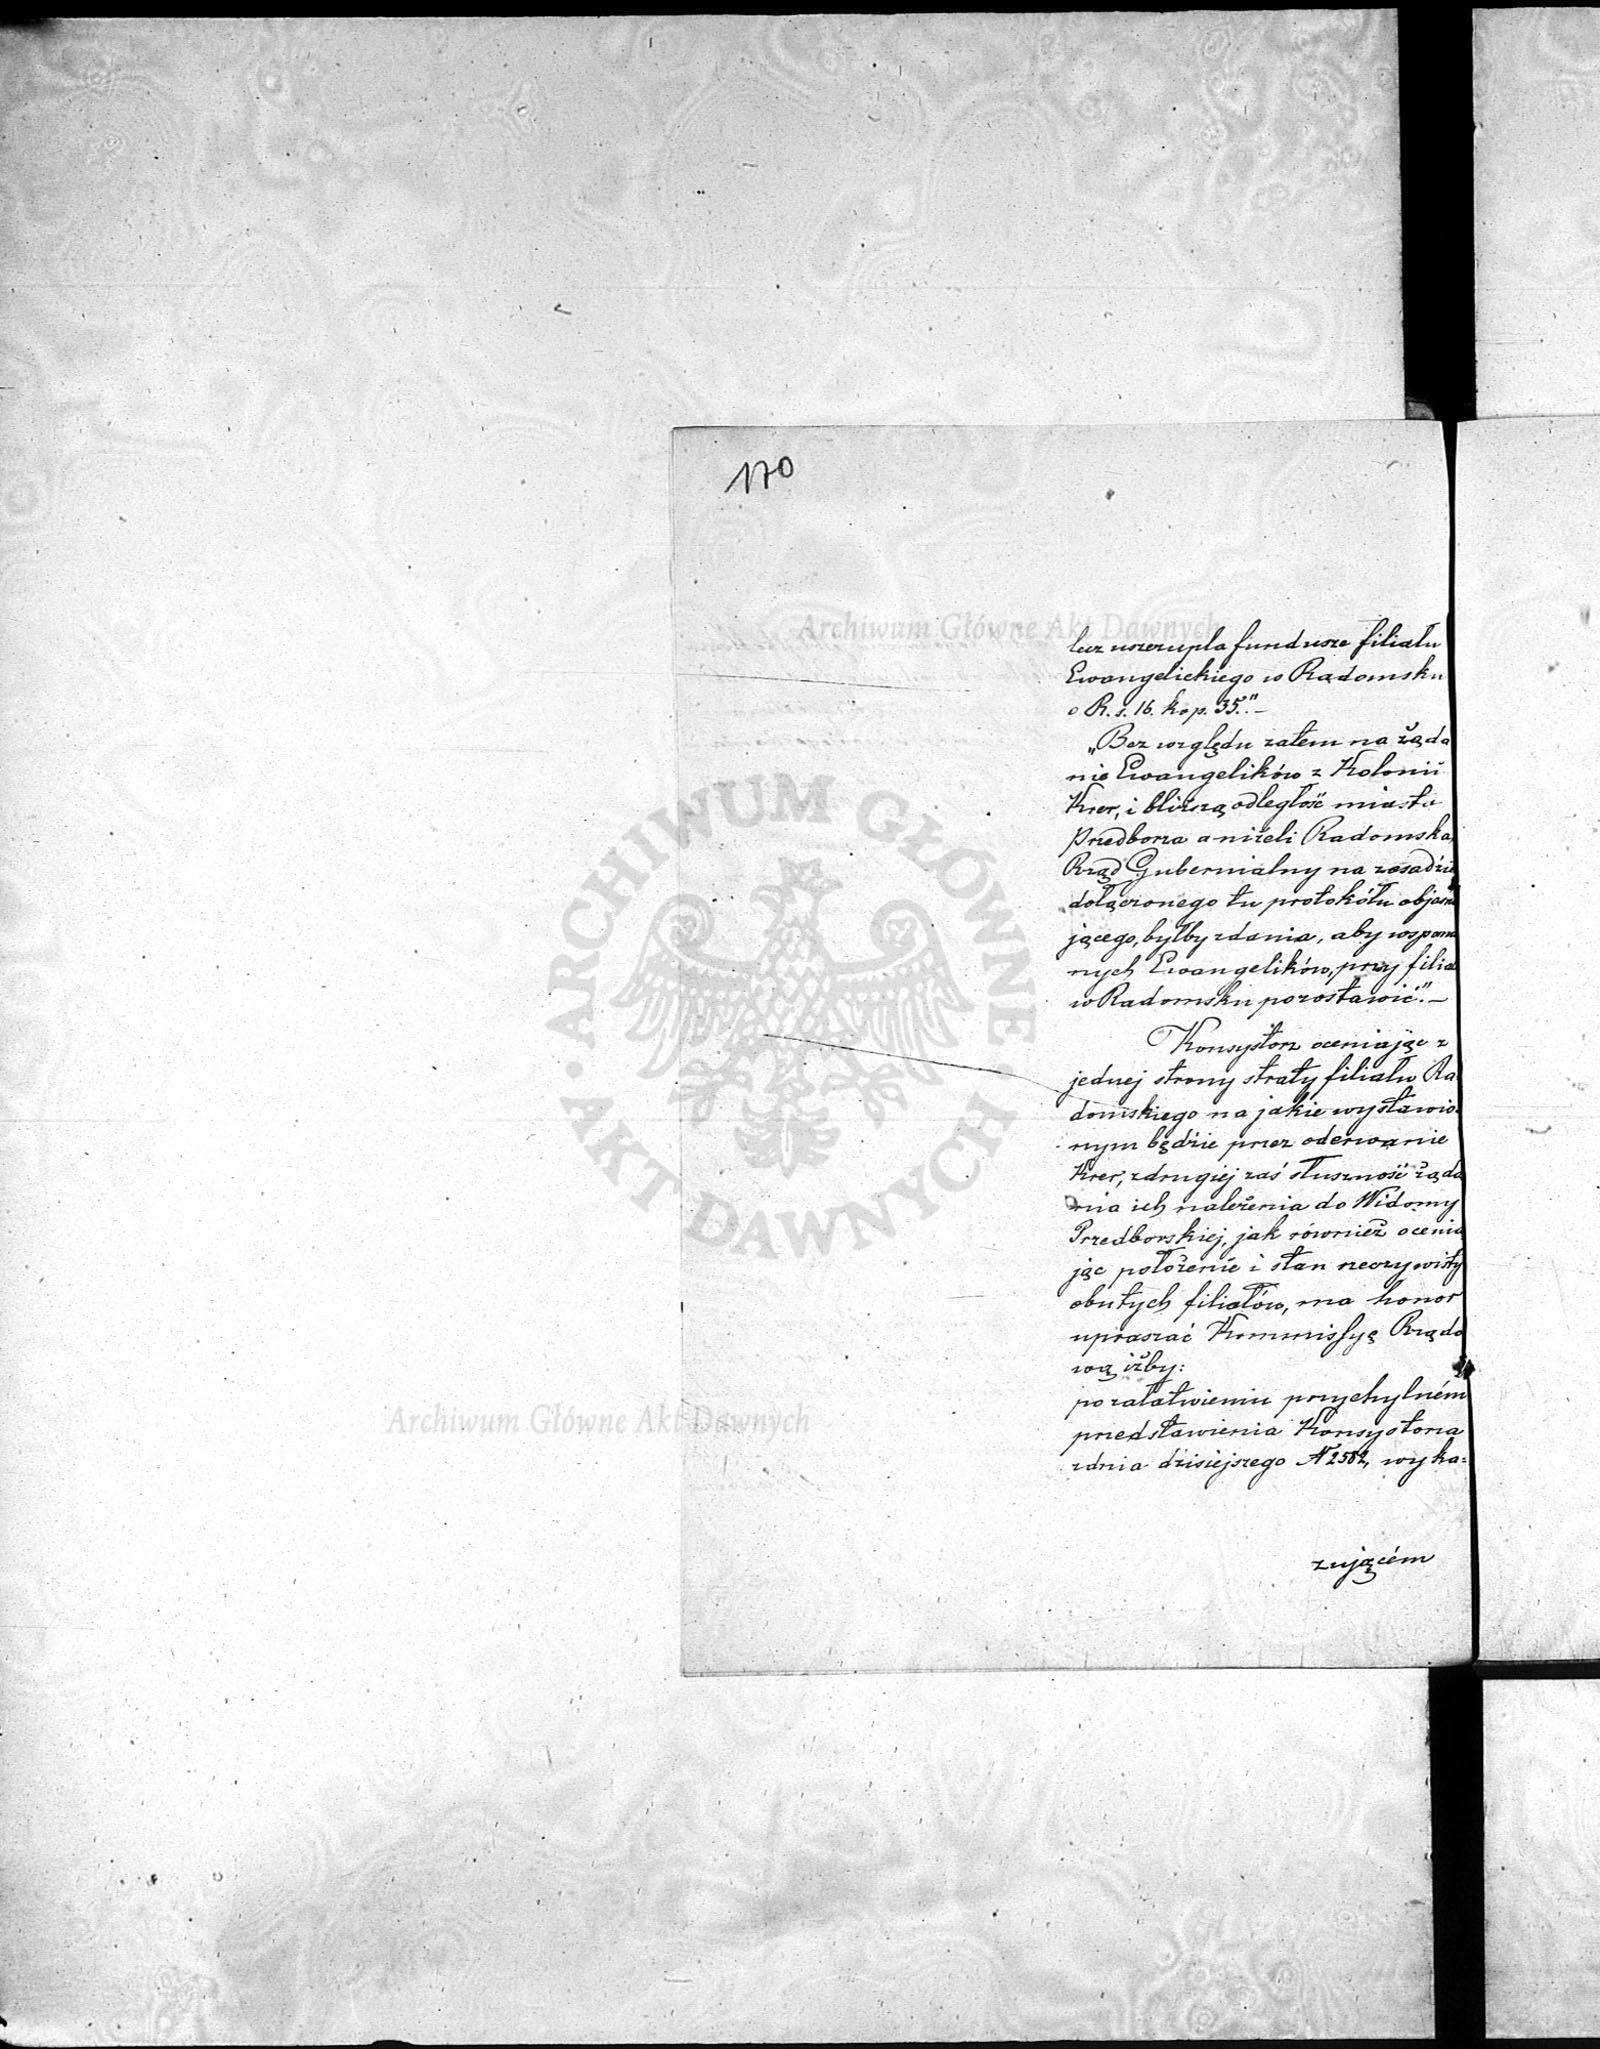 170
lecz uszczupla fundusze filiału
Ewangelickiego w Radomsku
o R. s. 16. kop. 35."—
„Bez względu zatem na żąda
nie Ewangelików z Kolonii
Krer, i bliższą odległość miasta
Przedborza aniżeli Radomska,
Rząd Gubernialny na zasadzie
dołączonego tu protokółu objaśni
jącego, byłby zdania, aby wspom
nych Ewangelików, przy filia
w Radomsku pozostawić."—
Konsystorz oceniając z
jednej strony straty filiału Ra
domskiego na jakie wystawio
nym będzie przez oderwanie
Krer, z drugiej zaś słuszność żąda
nia ich należenia do Widomy
Przedborskiej, jak również ocenia
jąc położenie i stan rzeczywisty
obutych filiałów, ma honor
upraszać Kommissyę Rządo
wą iżby:
po załatwieniu przychylném
przedstawienia Konsystorza
z dnia dzisiejszego N 2582, wyka=
zującém
Archiwum Główne Akt Dawnych
Archiwum Główne Akt Dawnych
ARCHIWUM GŁÓWNE
· AKT DAWNYCH ·